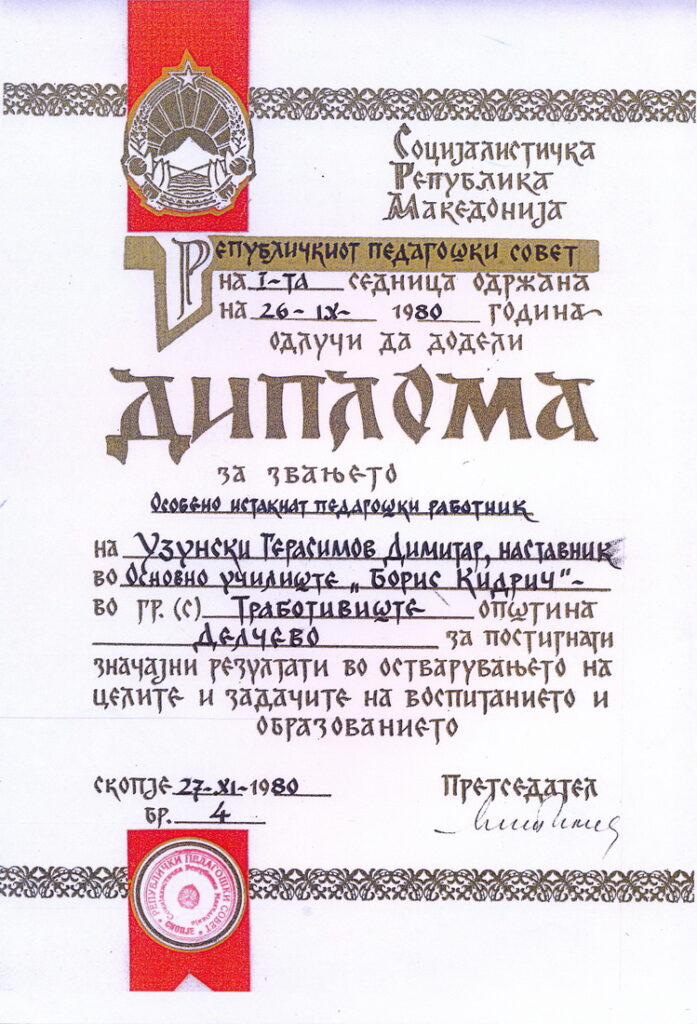 Социјалистичка
Република
Македонија
Републичкиот педагошки совет
на I-та седница одржана
на 26-IX- 1980 година
одлучи да додели
ДИПЛОМА
за звањето
Особено истакнат педагошки работник
на Узунски Герасимов Димитар, наставник
во Основно училиште „Борис Кидрич"-
во гр. (с) Тработивиште општина
Делчево за постигнати
значајни резултати во остварувањето на
целите и задачите на воспитанието и
образованието
Скопје 27-XI-1980 Претседател
бр. 4
РЕПУБЛИЧКИ ПЕДАГОШКИ СОВЕТ
Социјалистичка Република Македонија
СКОПЈЕ